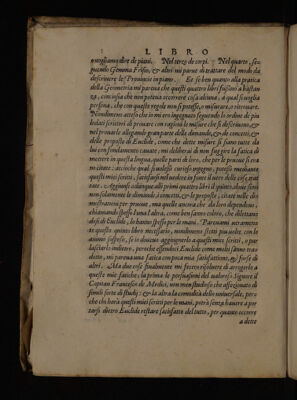 LIBRO
guendo Gemma Frisio, & altri mi parue di trattare del modo da
descriuere le Prouincie in piano. Et se ben quanto alla pratica
della Geometria mi pareua che questi quattro libri fussino a bastan
za, conciosia che non poteua occorrere cosa alcuna, a qual si voglia
persona, che con queste regole non si potesse, o misurare, o ritrouare.
Nondimeno atteso che in mi ero ingegnato seguendo le orme di piu
lodati scrittori di prouare con ragioni le misure che si descriueno, &
nel prouarle allegando gran parte delle dimande, & de concetti, &
delle proposte di Euclide, come che dette misure si sono tutte da
lui con fondamento cauate; mi deliberai di non fuggire la fatica di
mettere in questa lingua, quelle parti di loro, che per le prouue si era
no citate; accioche quasi si voglia curioso ingegno, potessi mediante
questi miei scritti, satisfarsi nel uedere in fonte il uero delle cose, trat
tate. Aggiunsi adunque alli primi quattro libri il quinto, doue sono
non solamente le dimande, i concetti, & le proposte, citate nelle di
mostrationi per prouue, ma quelle ancora che da loro dependeno,
chiamandosi spesso l'una l'altra, come ben sanno coloro, che dilettatosi
di Euclide, lo hanno spesso per le mani. Pareuami ueramente
questo quinto libro necessario, nondimeno stetti piu uolte con lo
animo sospeso, se io doueuo aggiugnerlo a questi miei scritti, o pur
lasciarlo indietro, perche essendoci Euclide come molti sanno tradotto,
mi pareua una fatica con poca mia satisfattione, & forse di
altri. Ma due cose finalmente mi fecero risoluere di arrogerlo a
queste mie fatiche, la prima le persuasioni del nobiliss. Signore il
Capitan Francesco de Medici, non men studioso che affetionato di
simili sorte di studij; & la altra la commodità dello uniuersale, pero
che chi hara questi miei scritti per le mani, potrà senza hauere a por
tarsi dietro Euclide restare satisfatto del tutto, per quanto occorre
a detto